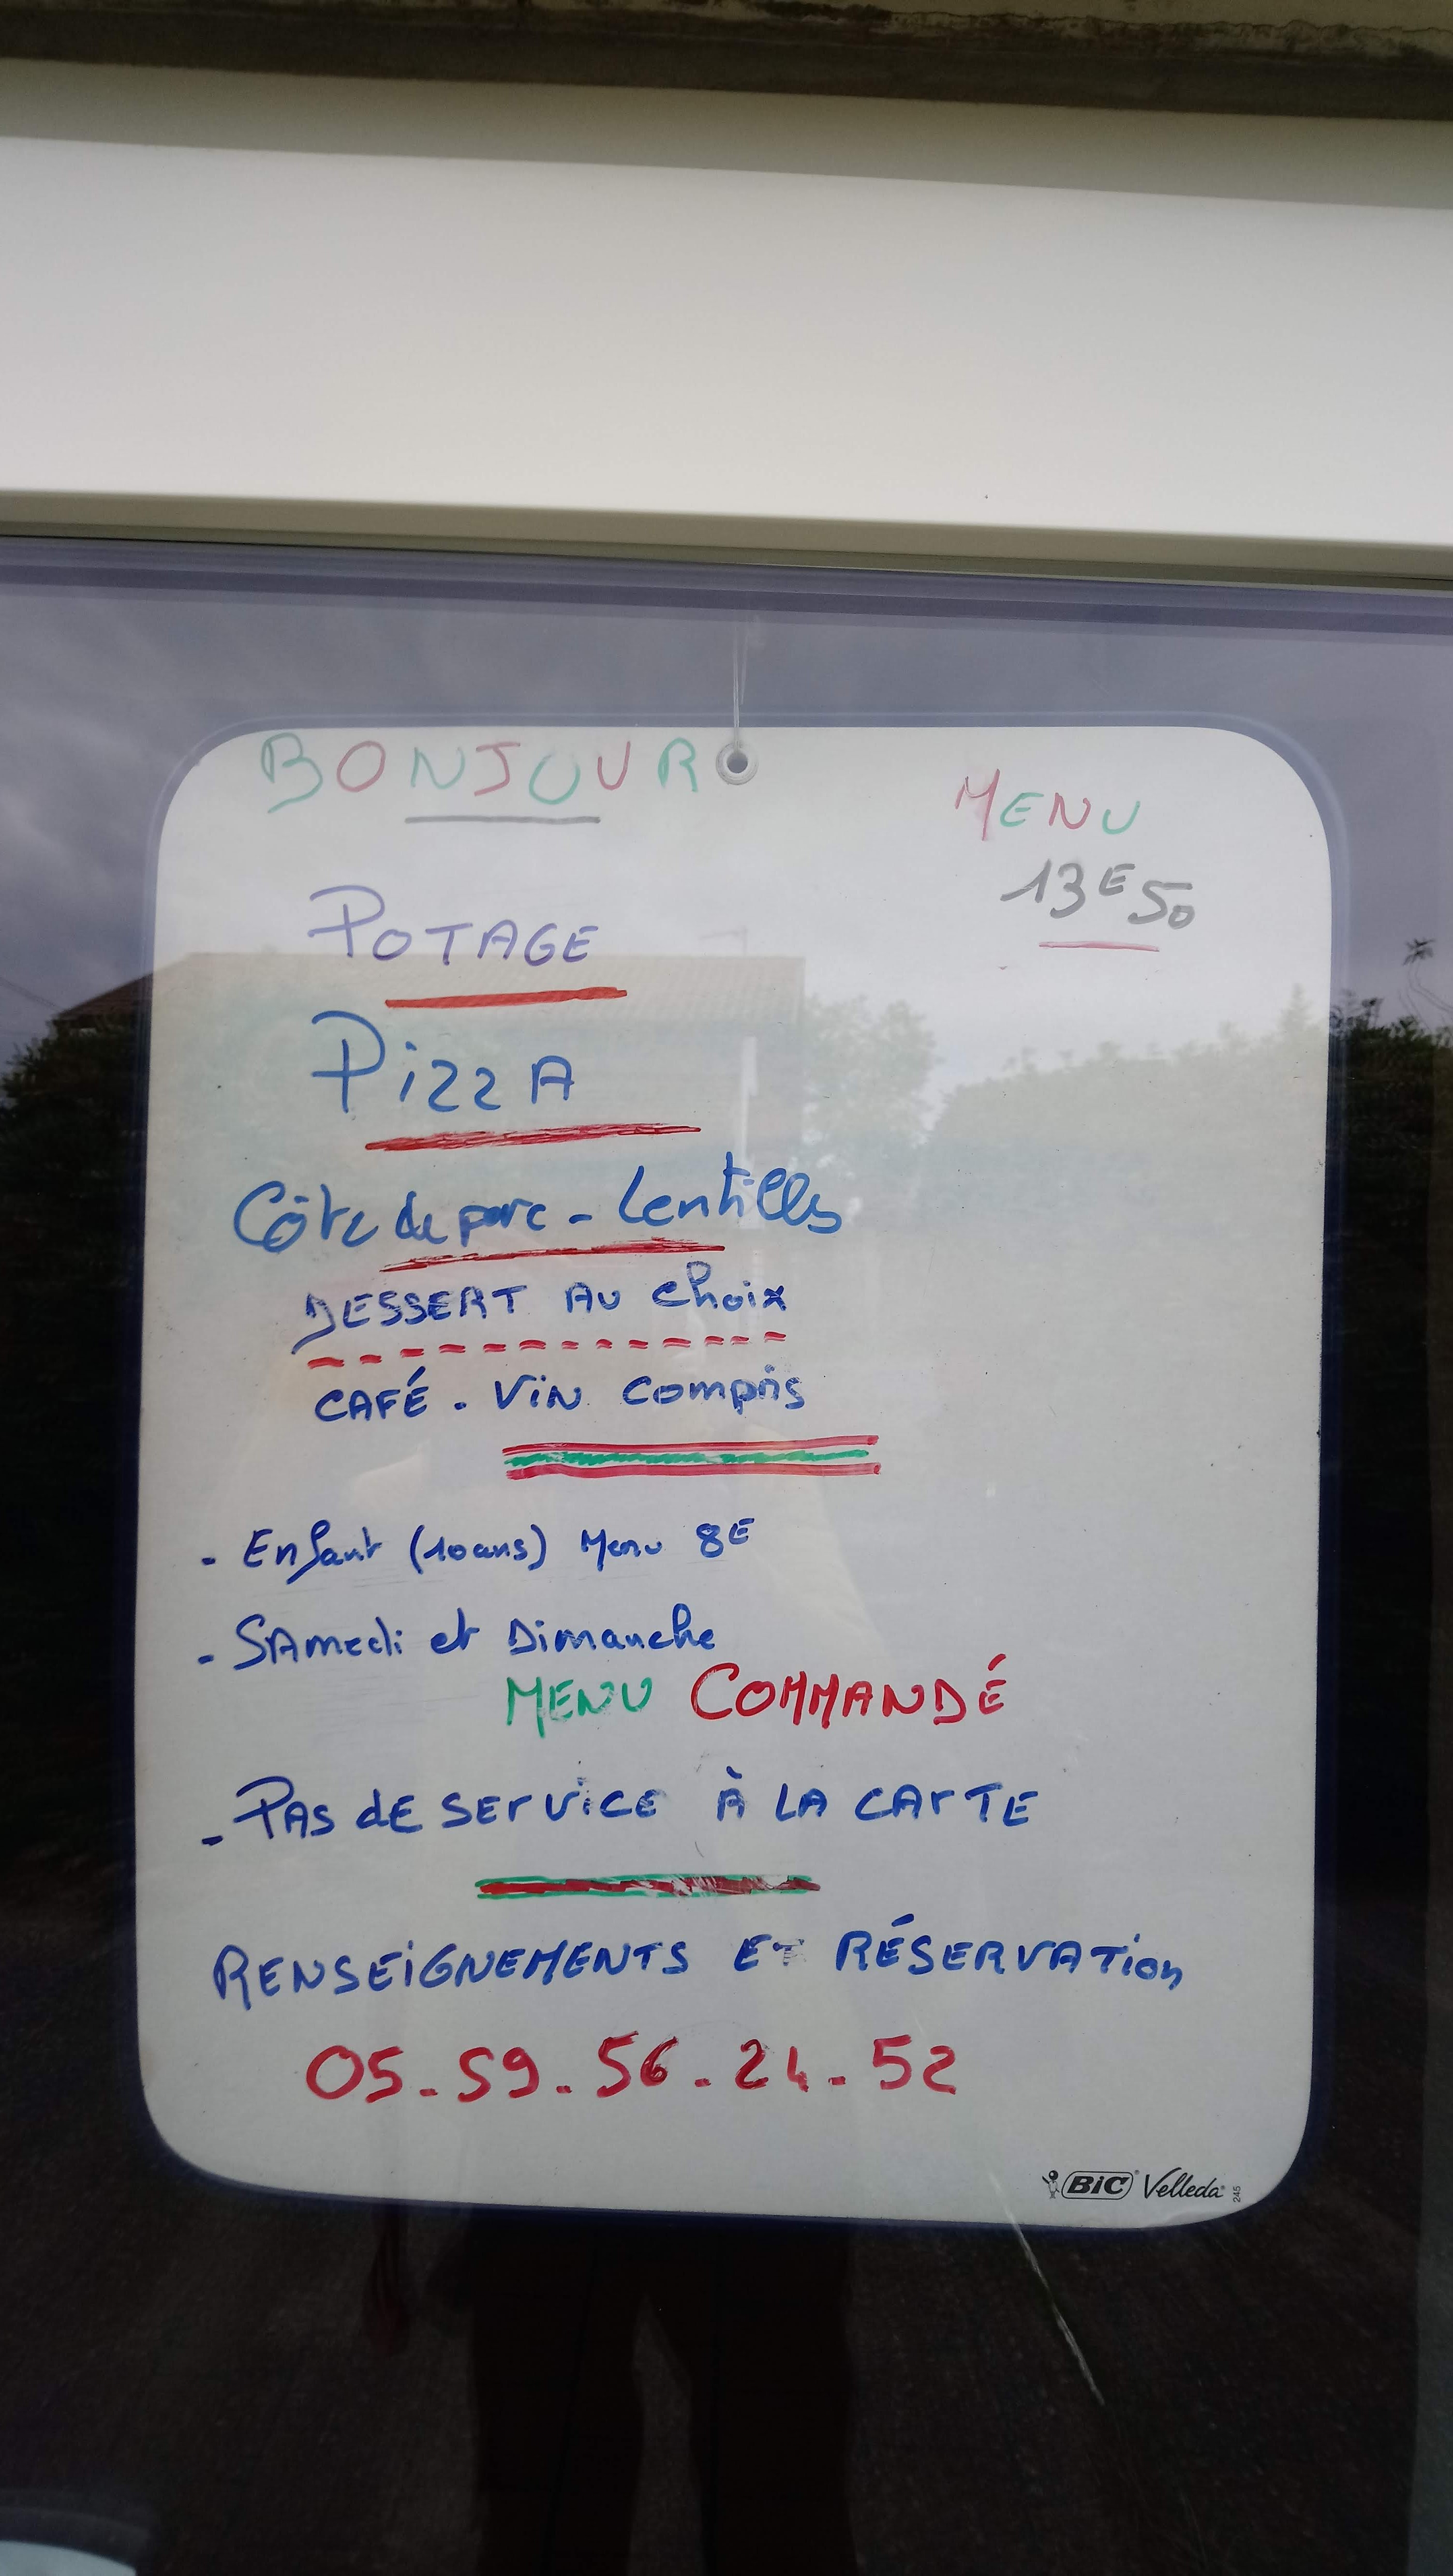 BONJOUR
MENU
13€50
POTAGE
PizzA
Côte de porc - Lentilles
DESSERT AU choix
CAFÉ - ViN compris
- Enfant (10 ans) Menu 8€
- SAmedi et Dimanche
MENU COMMANDÉ
- PAS dE SErViCE À LA CArTE
RENSEiGNEMENTS ET RÉSERVATion
05-59-56-24-52
BiC Velleda 245